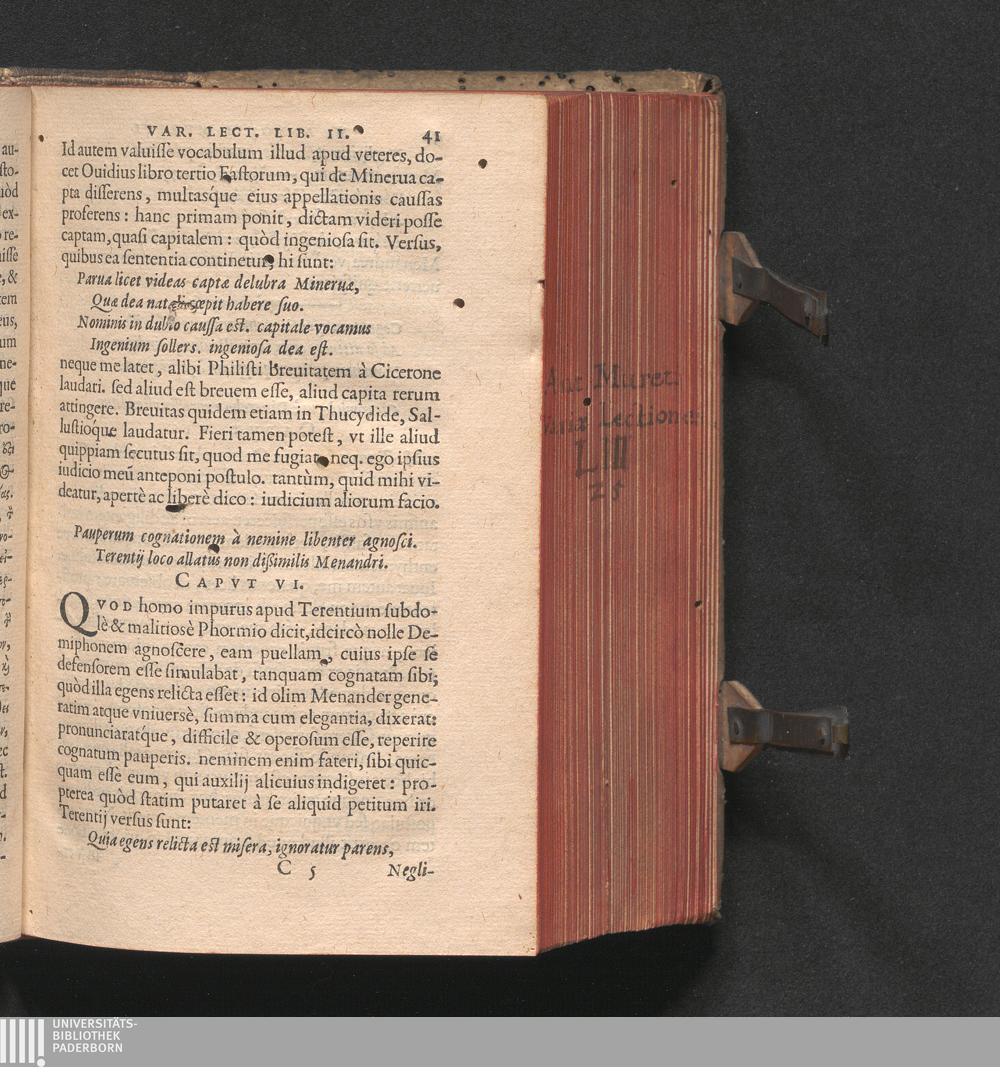 VAR. LECT. LIB. II. 41
Id autem valuiſſe vocabulum illud apud veteres, do-
cet Ouidius libro tertio Faſtorum, qui de Minerua ca-
pta diſſerens, multasq́ue eius appellationis cauſſas
proferens: hanc primam ponit, dictam videri poſſe
captam, quaſi capitalem: quòd ingenioſa ſit. Verſus,
quibus ea ſententia continetur, hi ſunt:
Parua licet videas captæ delubra Mineruæ,
Quæ dea habere ſuo.
Nominis in dubio cauſſa eſt. capitale vocamus
Ingenium ſollers. ingenioſa dea eſt.
neque me latet, alibi Philiſti breuitatem à Cicerone
laudari. ſed aliud eſt breuem eſſe, aliud capita rerum
attingere. Breuitas quidem etiam in Thucydide, Sal-
luſtioque laudatur. Fieri tamen poteſt, vt ille aliud
quippiam ſecutus ſit, quod me fugiat. neq. ego ipſius
iudicio meũ anteponi poſtulo. tantùm, quid mihi vi-
deatur, apertè ac liberè dico: iudicium aliorum facio.
Pauperum cognationem à nemine libenter agnoſci.
Terentij loco allatus non dißimilis Menandri.
CAPVT VI.
QVOD homo impurus apud Terentium ſubdo-
lè & malitiosè Phormio dicit, idcircò nolle De-
miphonem agnoſcere, eam puellam, cuius ipſe ſe
defenſorem eſſe ſimulabat, tanquam cognatam ſibi;
quòd illa egens relicta eſſet: id olim Menander gene-
ratim atque vniuersè, ſumma cum elegantia, dixerat:
pronunciaratq́ue, difficile & operoſum eſſe, reperire
cognatum pauperis. neminem enim fateri, ſibi quic-
quam eſſe eum, qui auxilij alicuius indigeret: pro-
pterea quòd ſtatim putaret à ſe aliquid petitum iri.
Terentij verſus ſunt:
Quia egens relicta eſt miſera, ignoratur parens,
C 5 Negli-
Ant. Muret.
Variæ Lectiones
LIII
25
UNIVERSITÄTS-
BIBLIOTHEK
PADERBORN